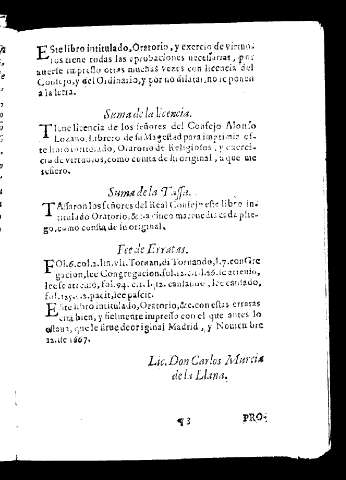 ESte libro intitulado, Oratorio, y exercio de virtuo-
sos tiene todas las aprobaciones necessarias, por
auerse impresso otras muchas vezes con licencia del
Consejo, y del Ordinario, y por no dilatar, no se ponen
a la letra.
Suma de la licencia.
TIene licencia de los señores del Consejo Alonso
Lozano, librero de su Magestad para imprimir es-
te libro intitulado, Oratorio de Religiosos, y exerci-
cio de virtuosos, como consta de su original, a que me
refiero.
Suma de la Tassa.
TAssaron los señores del Real Consejo este libro in-
titulado Oratorio, &c. a cinco marauedis cada plie-
go, como consta de su original.
Fee de Erratas.
FOl.6. col.2. lin. vlt. Tornan, di Tornando, l.7. conGre
gacion, lee Congregacion, fol.12. col. lee
lee fol.94. col. l.12. cantanao, lee cantado,
fol. pacit, lee pascit.
Este libro intitulado, Oratorio, &c. con estas erratas
està bien, y fielmente impresso con el que antes lo
estaua, que le sirue de original Madrid, y Nouiembre
22. de 1667.
Lic. Don Carlos Murcia
de la Llana.
¶3 PRO-